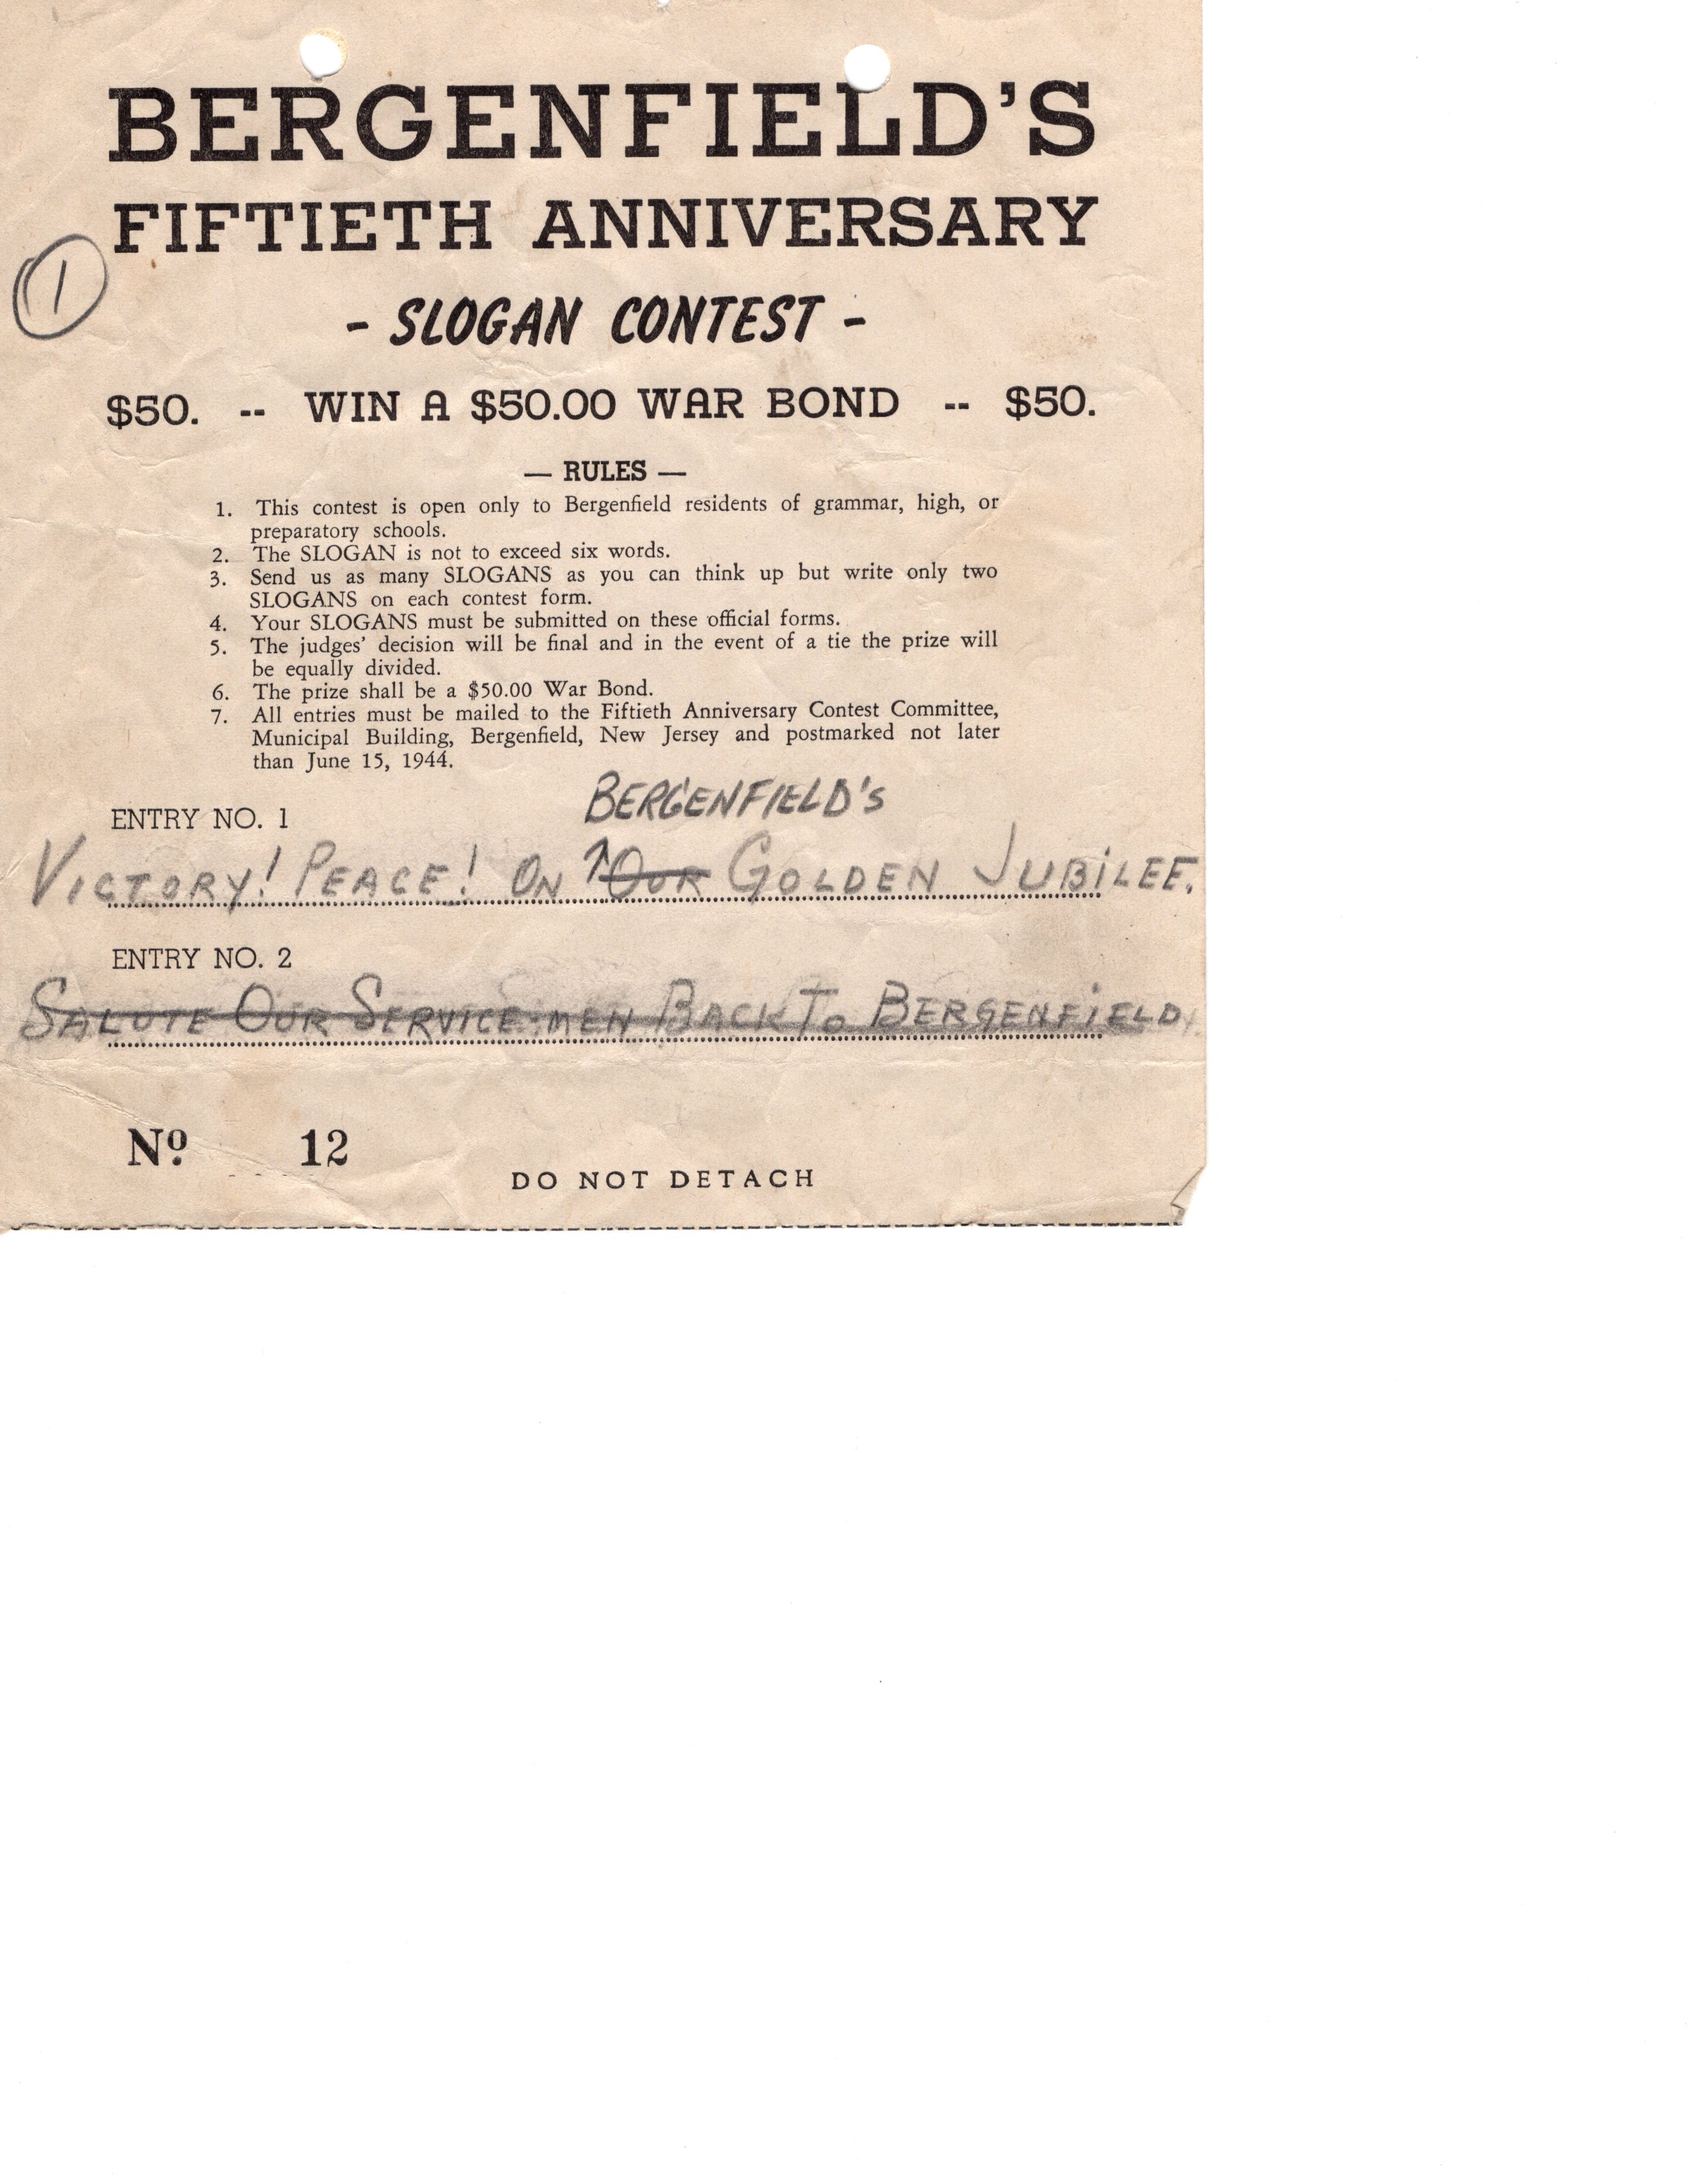 BERGENFIELD'S
FIFTIETH ANNIVERSARY
1
- SLOGAN CONTEST -
$50. -- WIN A $50.00 WAR BOND -- $50.
— RULES —
1. This contest is open only to Bergenfield residents of grammar, high, or
preparatory schools.
2. The SLOGAN is not to exceed six words.
3. Send us as many SLOGANS as you can think up but write only two
SLOGANS on each contest form.
4. Your SLOGANS must be submitted on these official forms.
5. The judges' decision will be final and in the event of a tie the prize will
be equally divided.
6. The prize shall be a $50.00 War Bond.
7. All entries must be mailed to the Fiftieth Anniversary Contest Committee,
Municipal Building, Bergenfield, New Jersey and postmarked not later
than June 15, 1944.
BERGENFIELD'S
ENTRY NO. 1
VICTORY! PEACE! ON ↑ OUR GOLDEN JUBILEE.
ENTRY NO. 2
SALUTE OUR SERVICE-MEN BACK TO BERGENFIELD.
Nº 12
DO NOT DETACH